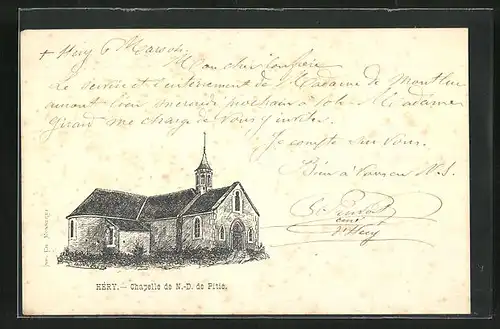 + Hery 6 Mars
Mon cher confrère
Le service et l'enterrement de Madame de Montluc
auront lieu mercredi prochain à 10 h. Madame
Girard me charge de vous y inviter.
Je compte sur vous.
Bien à vous en N. S.
curé
d'Hery
HÉRY. — Chapelle de N.-D. de Pitié.